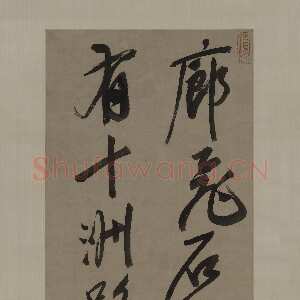 廊飛石
有十洲
Shufawang.CN